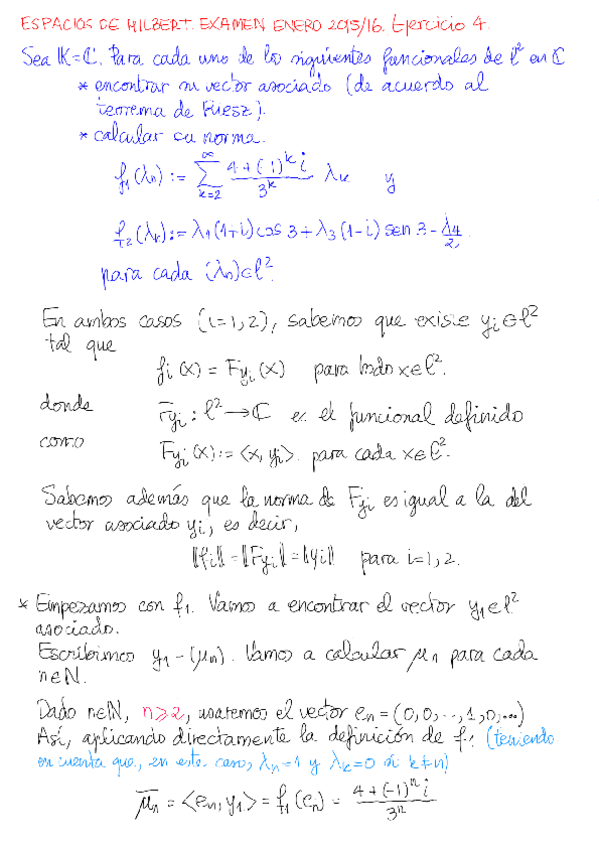 ESPACIOS DE HILBERT. EXAMEN ENERO 2015/16. Ejercicio 4.
Sea K=ℂ. Para cada uno de los siguientes funcionales de ℓ² en ℂ
* encontrar su vector asociado (de acuerdo al
teorema de Riesz).
* calcular su norma.
f₁(λn) := ∑_{k=2}^{∞} (4+(-1)^k i)/3^k λk y
f₂(λk) := λ₁(1+i) cos 3 + λ₃(1-i) sen 3 - λ₄/2,
para cada (λn)∈ℓ².
En ambos casos (i=1,2), sabemos que existe yi∈ℓ²
tal que
fi(x) = Fyi(x) para todo x∈ℓ².
donde Fyi : ℓ² → ℂ es el funcional definido
como Fyi(x) := <x, yi> para cada x∈ℓ².
Sabemos además que la norma de Fyi es igual a la del
vector asociado yi, es decir,
‖fi‖ = ‖Fyi‖ = ‖yi‖ para i=1,2.
* Empezamos con f₁. Vamos a encontrar el vector y₁∈ℓ²
asociado.
Escribimos y₁ = (μn). Vamos a calcular μn para cada
n∈ℕ.
Dado n∈ℕ, n≥2, usaremos el vector en = (0,0,...,1,0,...)
Así, aplicando directamente la definición de f₁ (teniendo
en cuenta que, en este caso, λn=1 y λk=0 si k≠n)
μ̅n = <en, y₁> = f₁(en) = (4+(-1)^n i)/3^n